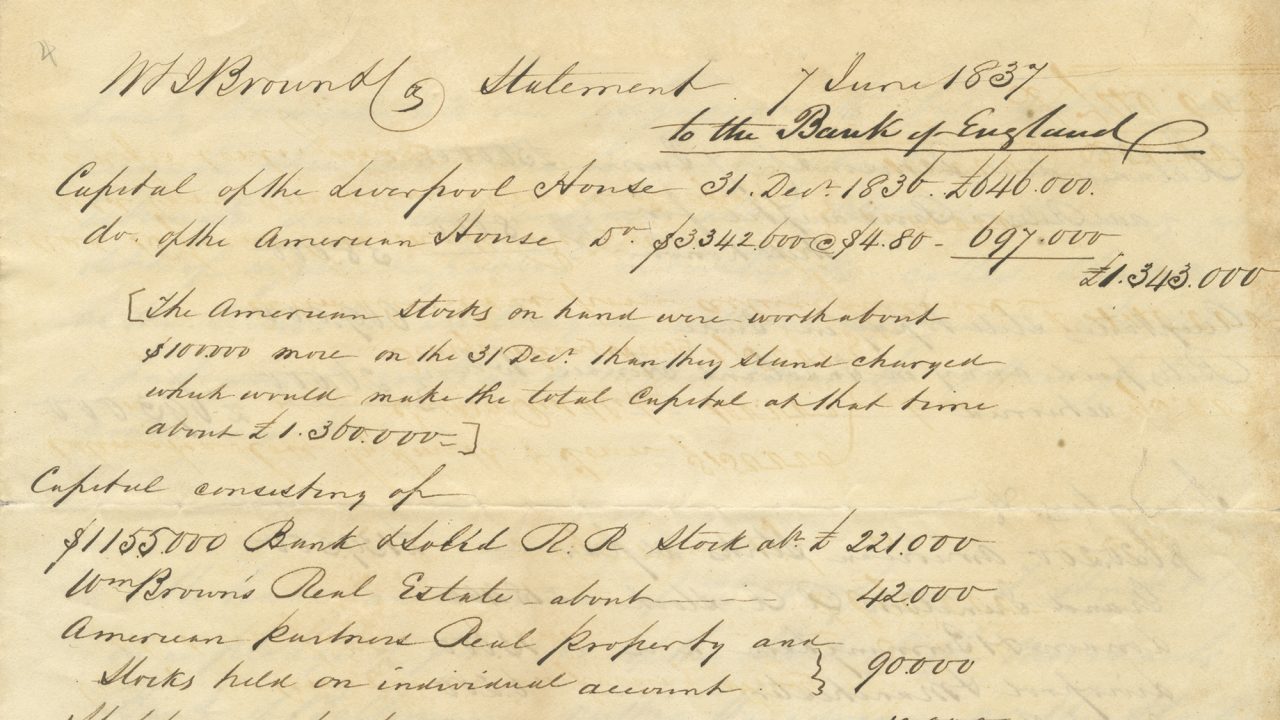 4
W & J Brown & Co Statement 7 June 1837
to the Bank of England
Capital of the Liverpool House 31. Decr. 1836. £646.000.
do. of the American House Do. $3.342.600 @ $4.80 - 697.000
£1.343.000
[The American Stocks on hand were worth about
$100.000 more on the 31 Decr. than they stand charged
which would make the total Capital at that time
about £1.360.000-]
Capital consisting of
$1155000 Bank & solid R. R Stock abt. £ 221.000
Wm Brown's Real Estate about 42.000
American partners Real property and
Stocks held on individual account } 90000